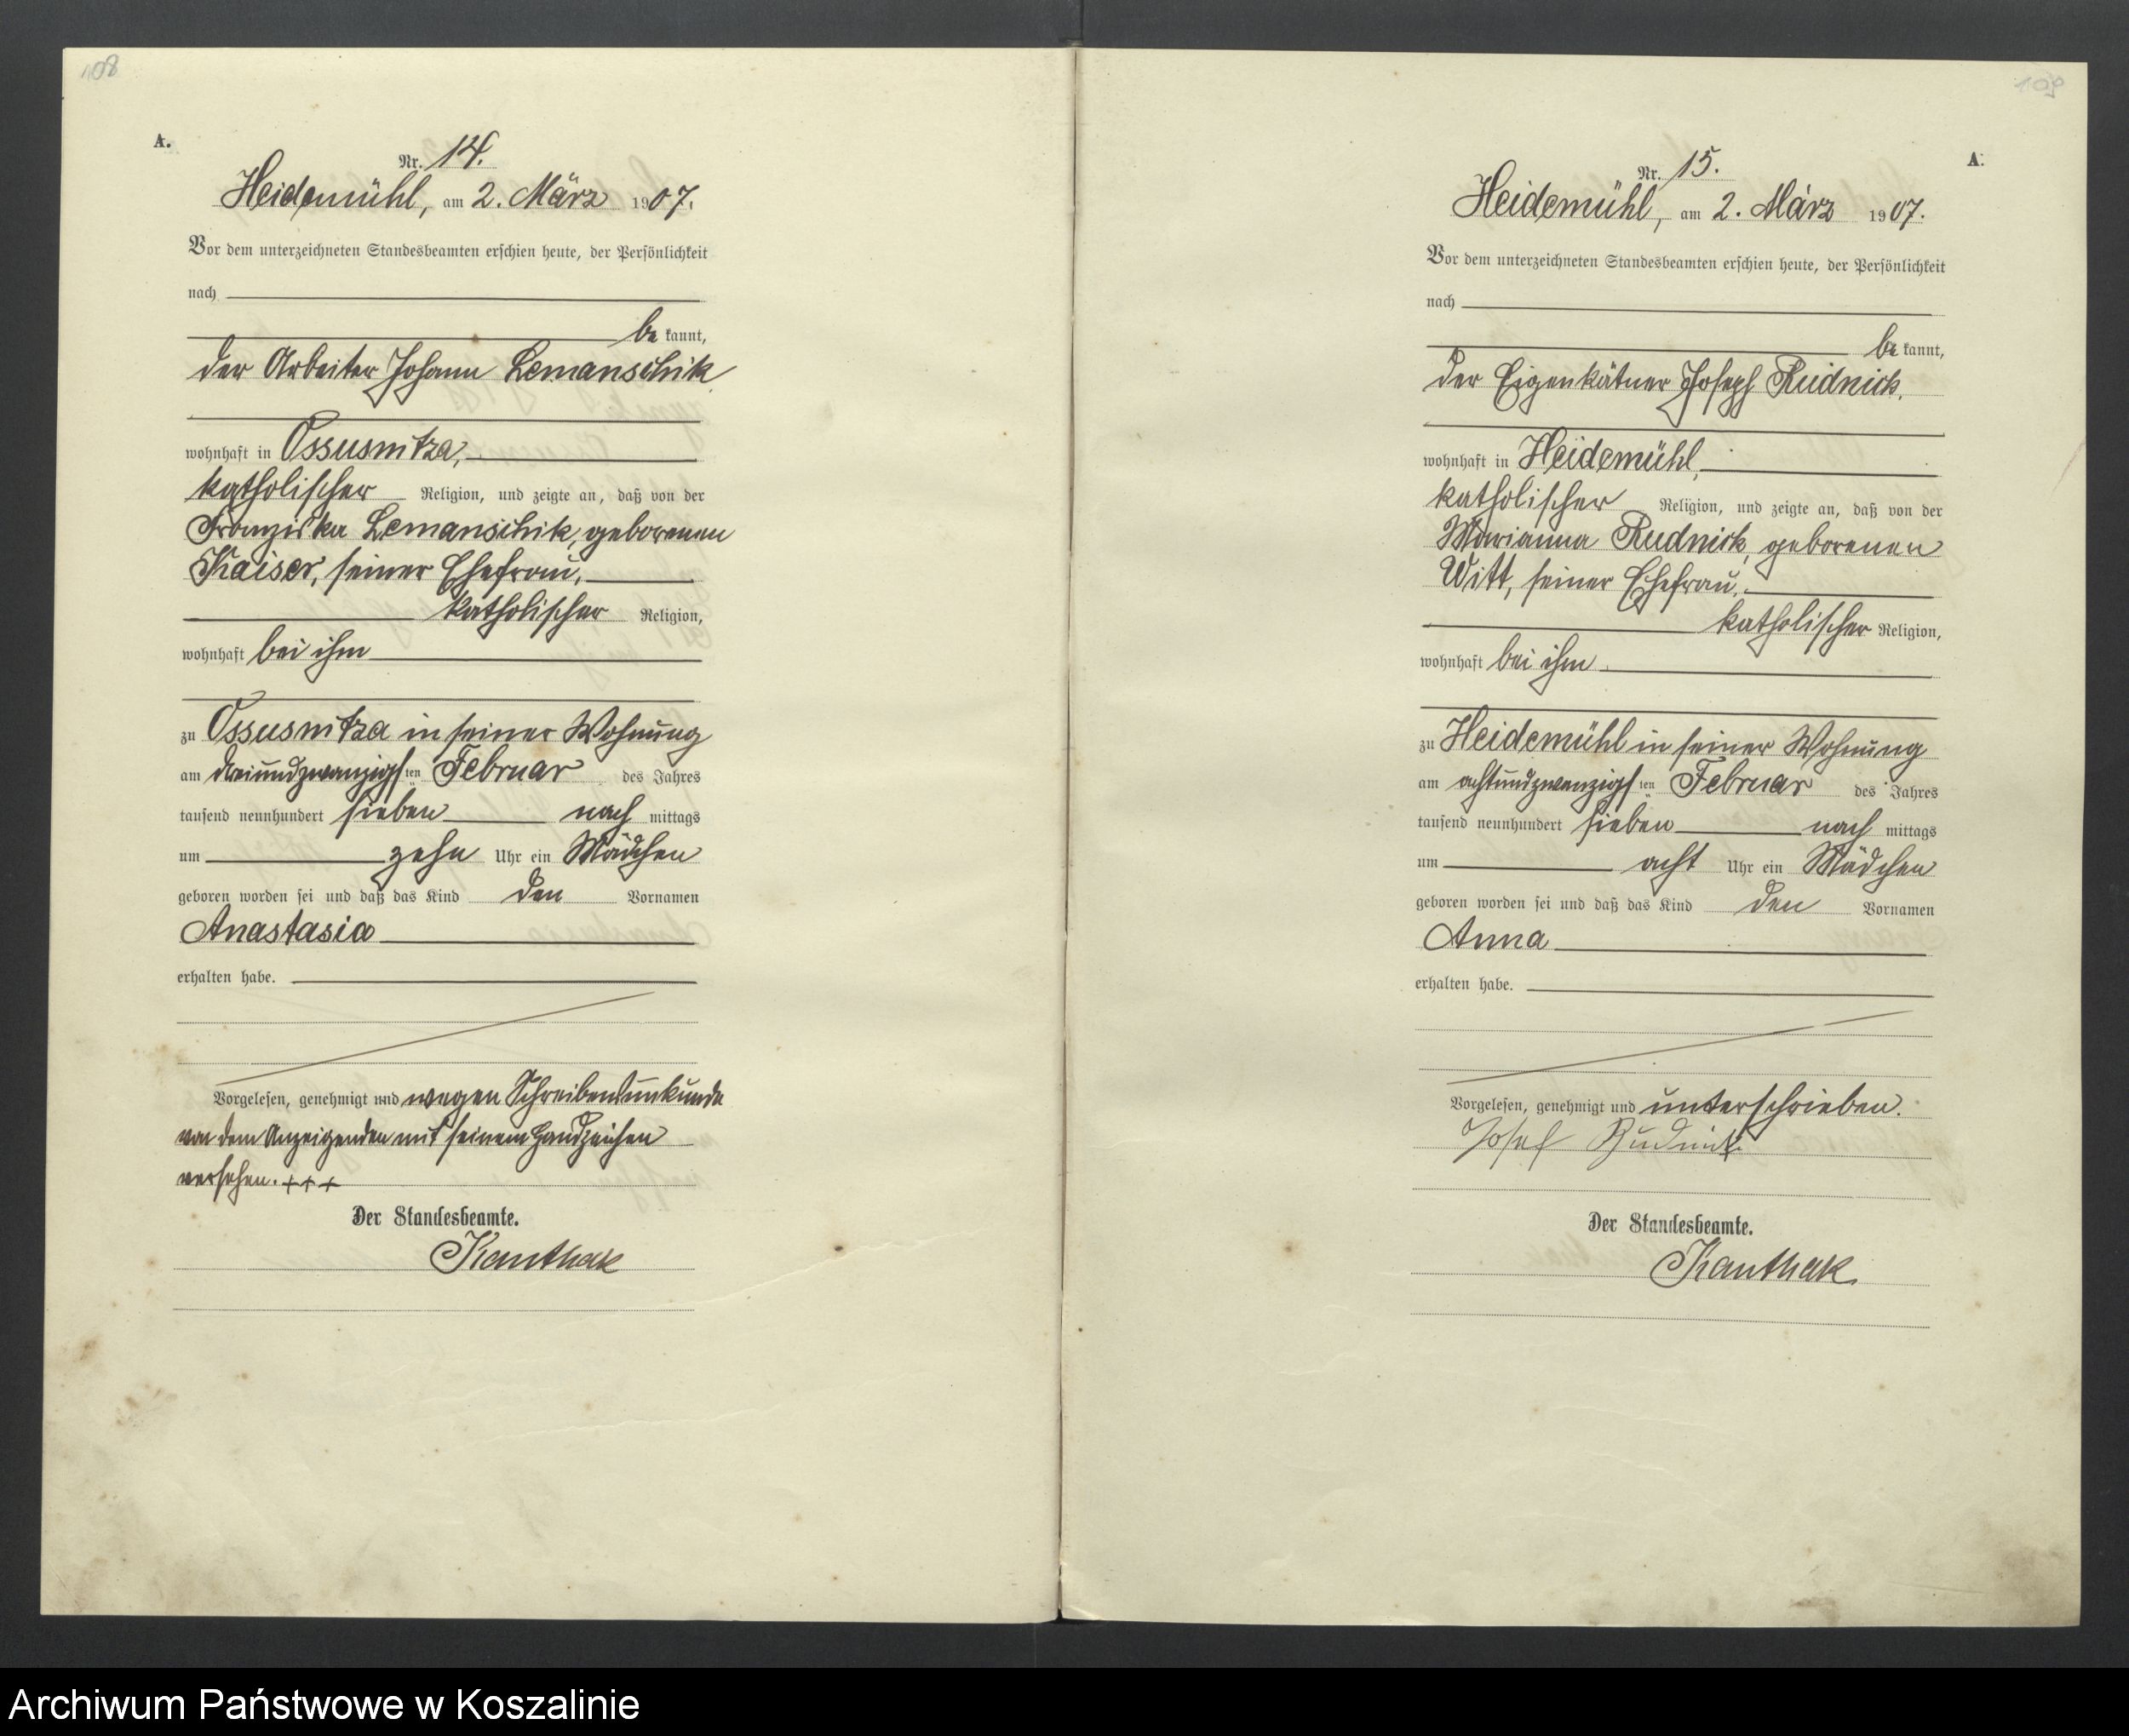 108
A.
Nr. 14.
Heidemühl, am 2. März 1907.
Vor dem unterzeichneten Standesbeamten erschien heute, der Persönlichkeit
nach
be kannt,
der Arbeiter Johann Lemanschik
wohnhaft in Ossusnitza,
katholischer Religion, und zeigte an, daß von der
Franziska Lemanschik, geborenen
Kaiser, seiner Ehefrau,
katholischer Religion,
wohnhaft bei ihm
zu Ossusnitza in seiner Wohnung
am dreiundzwanzigsten Februar des Jahres
tausend neunhundert sieben nach mittags
um zehn Uhr ein Mädchen
geboren worden sei und daß das Kind den Vornamen
Anastasia
erhalten habe.
Vorgelesen, genehmigt und wegen Schreibensunkunde
von dem Anzeigenden mit seinem Handzeichen
versehen. +++
Der Standesbeamte.
Kanthak
109
A.
Nr. 15.
Heidemühl, am 2. März 1907.
Vor dem unterzeichneten Standesbeamten erschien heute, der Persönlichkeit
nach
be kannt,
der Eigenkätner Joseph Rudnick,
wohnhaft in Heidemühl,
katholischer Religion, und zeigte an, daß von der
Marianna Rudnick, geborenen
Witt, seiner Ehefrau,
katholischer Religion,
wohnhaft bei ihm
zu Heidemühl in seiner Wohnung
am achtundzwanzigsten Februar des Jahres
tausend neunhundert sieben nach mittags
um acht Uhr ein Mädchen
geboren worden sei und daß das Kind den Vornamen
Anna
erhalten habe.
Vorgelesen, genehmigt und unterschrieben.
Josef Rudnik
Der Standesbeamte.
Kanthak
Archiwum Państwowe w Koszalinie